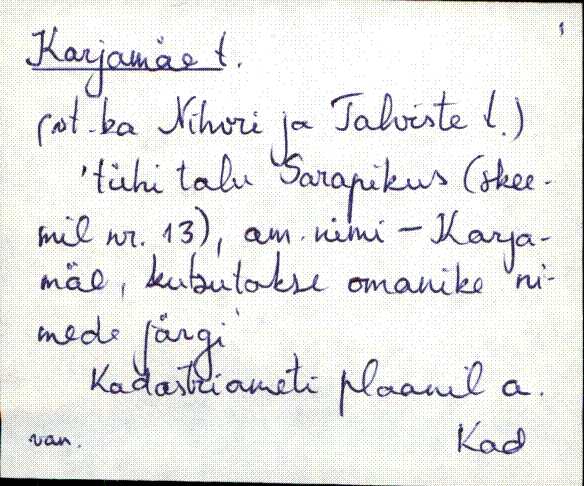 Karjamäe t.
(vt. ka Nihvri ja Talviste t.)
'tühi talu Sarapikus (skee-
mil nr. 13), am. nimi – Karja-
mäe, kutsutakse omanike ni-
mede järgi'
Kadastriameti plaanil a.
van. Kad